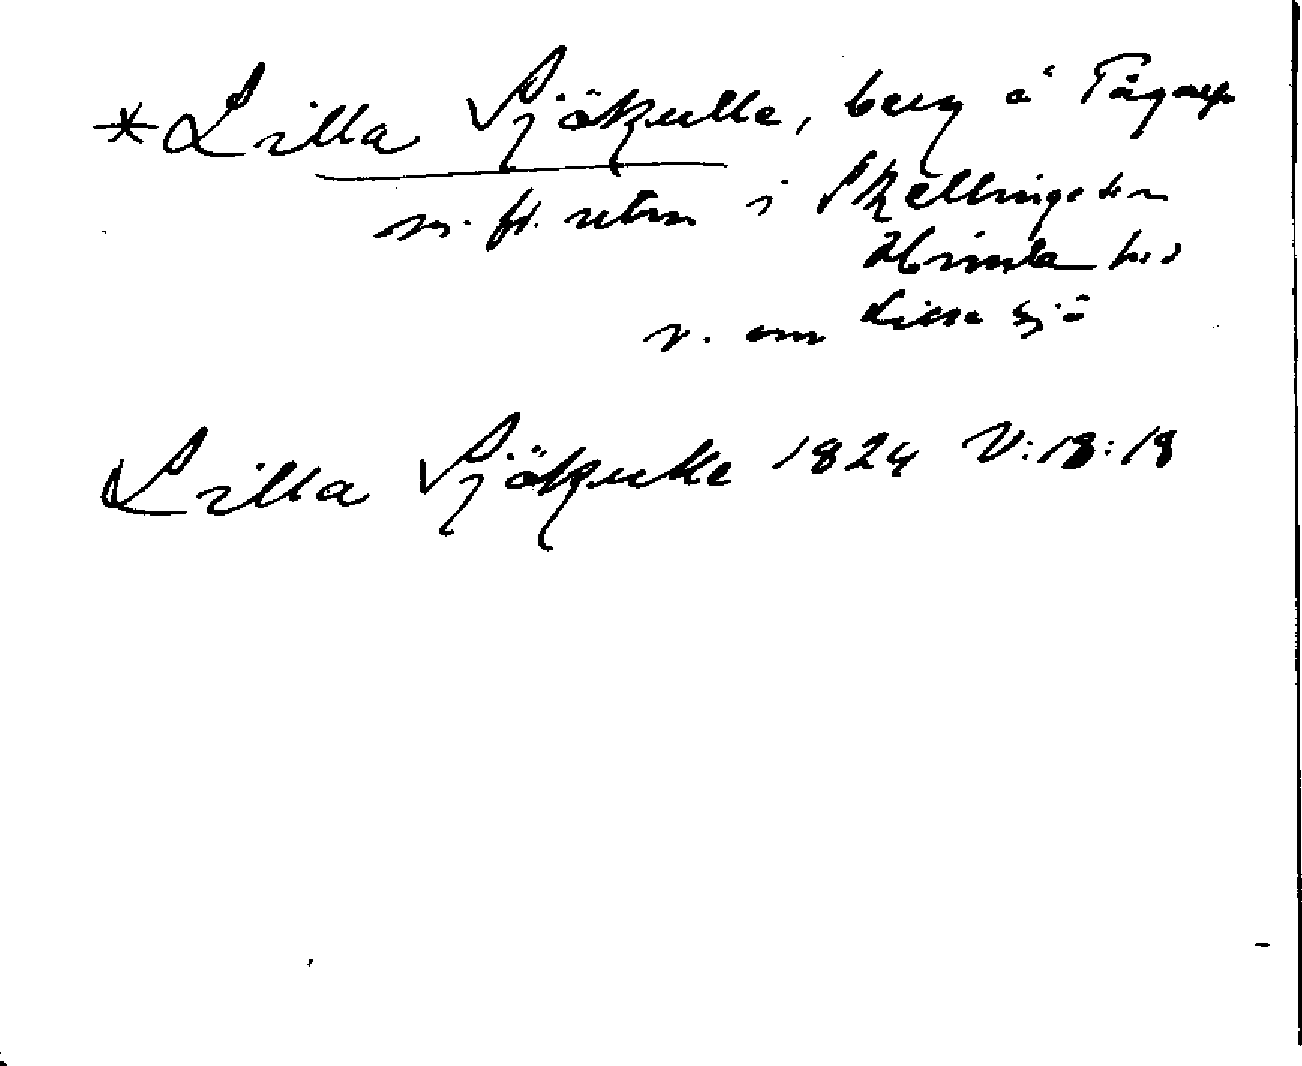 *Lilla Sjökulle, berg å Tågarp
m. fl. utm i Skällinge sn
Himle hd
v. om Lilla sjö
Lilla Sjökulle 1824 V:18:18